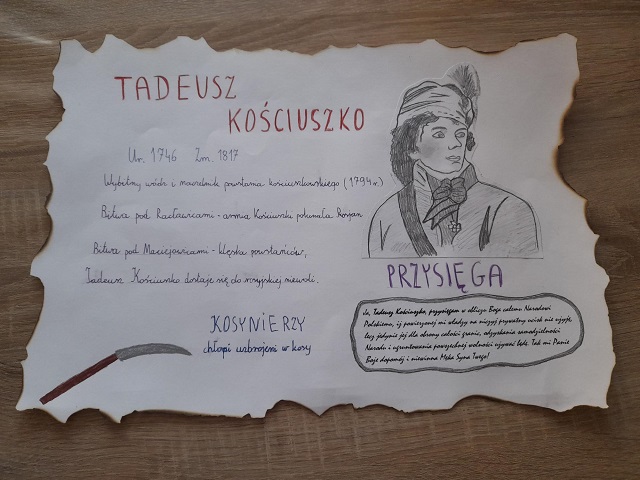 TADEUSZ
KOŚCIUSZKO
Ur. 1746 Zm. 1817
Wybitny wódz i naczelnik powstania kościuszkowskiego (1794 r.)
Bitwa pod Racławicami - armia Kościuszki pokonała Rosjan
Bitwa pod Maciejowicami - klęska powstańców,
Tadeusz Kościuszko dostaje się do rosyjskiej niewoli.
KOSYNIERZY
chłopi uzbrojeni w kosy
PRZYSIĘGA
Ja, Tadeusz Kościuszko, przysięgam w obliczu Boga całemu Narodowi
Polskiemu, iż powierzonej mi władzy na niczyj prywatny ucisk nie użyję,
lecz jedynie jej dla obrony całości granic, odzyskania samodzielności
Narodu i ugruntowania powszechnej wolności używać będę. Tak mi Panie
Boże dopomóż i niewinna Męka Syna Twego!